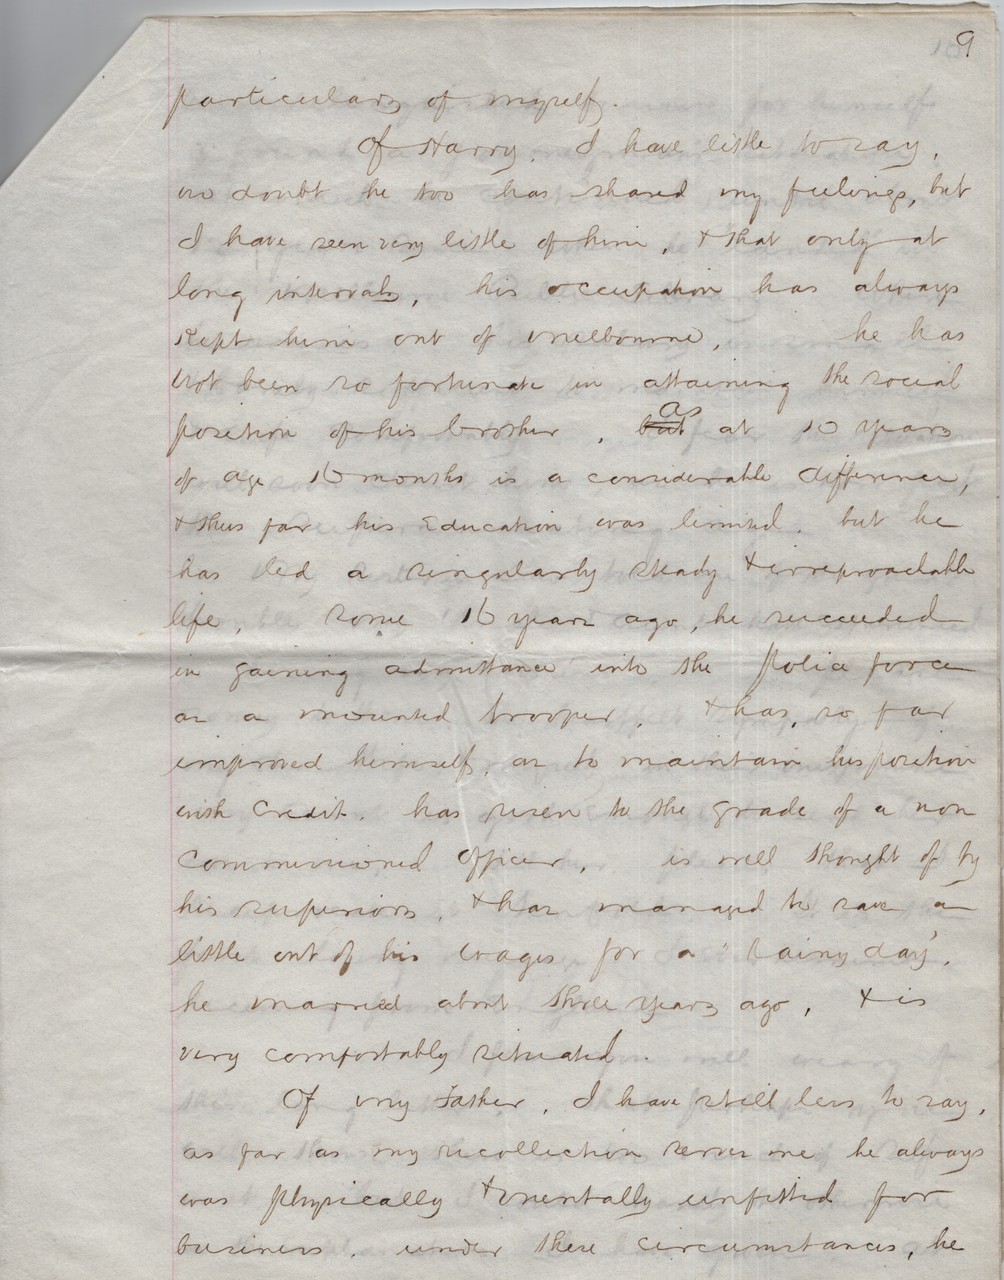 9
particulars of myself.
Of Harry, I have little to say,
no doubt he too has shared my feelings, but
I have seen very little of him, & that only at
long intervals, his occupation has always
Kept him out of Melbourne, he has
not been so fortunate in attaining the social
position of his brother, but as at 10 years
of age 16 months is a considerable difference,
& thus far his Education was limited. but he
has led a singularly steady & irreproachable
life, some 16 years ago, he succeeded
in gaining admittance into the Police force
as a mounted trooper, & has, so far
improved himself, as to maintain his position
with Credit. has risen to the grade of a non
Commissioned Officer, is well thought of by
his superiors, & has managed to save a
little out of his wages for a "rainy day".
he married about three years ago, & is
very comfortably situated.
Of my Father, I have still less to say,
as far as my recollection serves me he always
was physically & mentally unfitted for
business. under these circumstances, he